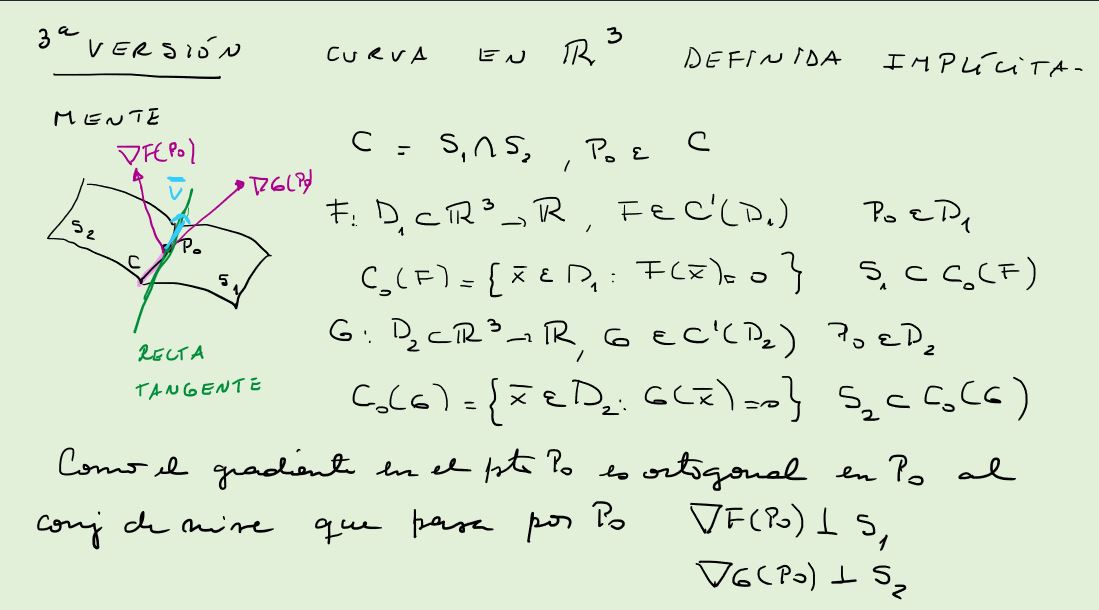 3ª VERSIÓN CURVA EN ℝ³ DEFINIDA IMPLÍCITA-
MENTE
C = S₁∩S₂, P₀ ε C
∇F(P₀)
v̄
∇G(P₀)
S₂
P₀
C
S₁
RECTA
TANGENTE
F: D₁⊂ℝ³→ℝ, F ε C'(D₁) P₀ ε D₁
C₀(F) = {x̄ ε D₁: F(x̄)=0} S₁ ⊂ C₀(F)
G: D₂⊂ℝ³→ℝ, G ε C'(D₂) P₀ ε D₂
C₀(G) = {x̄ ε D₂: G(x̄)=0} S₂ ⊂ C₀(G)
Como el gradiente en el pto P₀ es ortogonal en P₀ al
conj de nive que pasa por P₀ ∇F(P₀) ⊥ S₁
∇G(P₀) ⊥ S₂